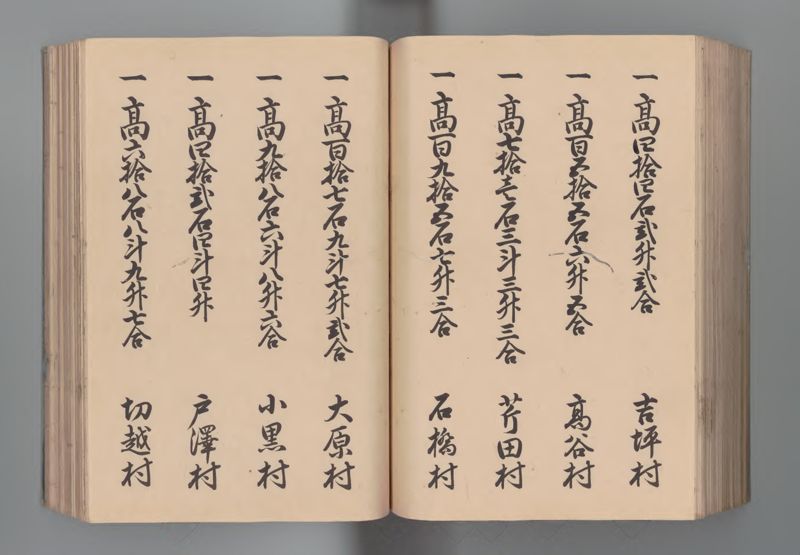 一 髙四拾四石弐升弐合 吉坪村
一 髙百五拾五石六升五合 髙谷村
一 髙七拾壱石三斗三升三合 芹田村
一 髙百九拾五石七升三合 石橋村
一 髙百拾七石九斗七升弐合 大原村
一 髙九拾八石六斗八升六合 小黒村
一 髙四拾弐石四斗四升 戸澤村
一 髙六拾八石八斗九升七合 切越村